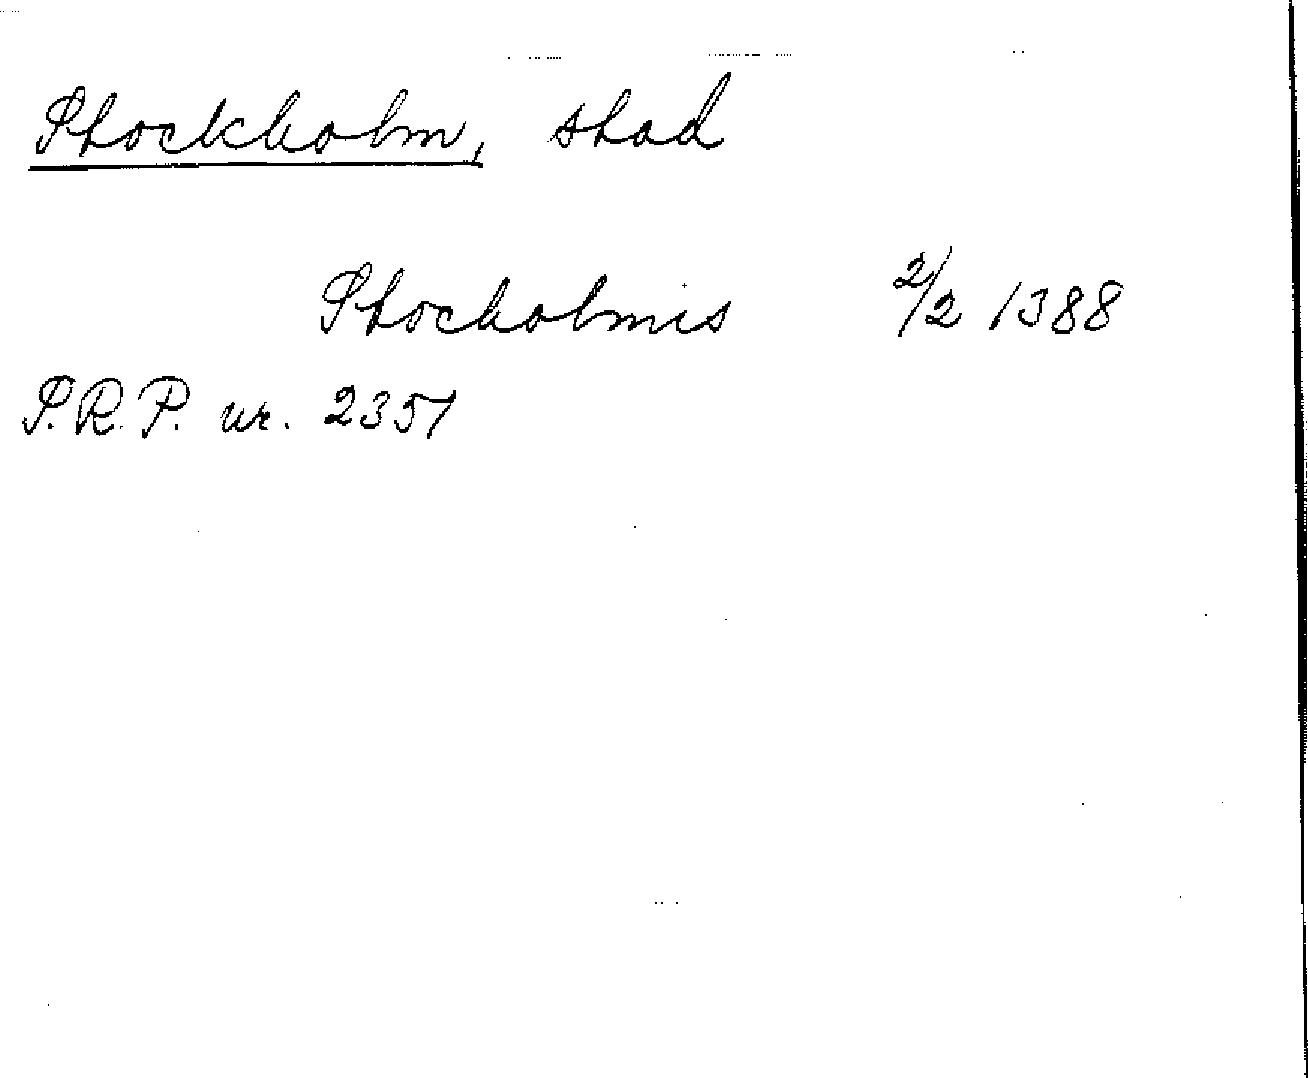 Stockholm, stad
Stocholmis 2/2 1388
S.R.P. nr. 2351